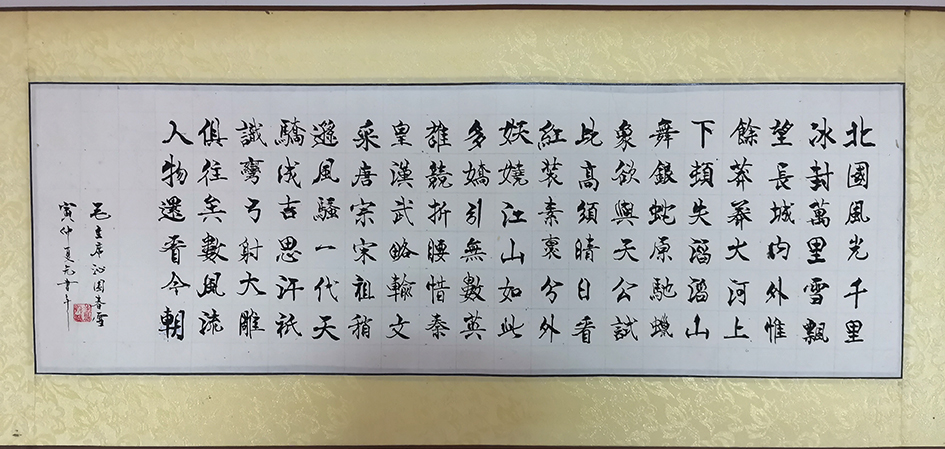 北國風光千里
冰封萬里雪飄
望長城内外惟
餘莽莽大河上
下頓失滔滔山
舞銀蛇原馳蠟
象欲與天公試
比高須晴日看
紅裝素裹分外
妖嬈江山如此
多嬌引無數英
雄競折腰惜秦
皇漢武略輸文
采唐宗宋祖稍
遜風騷一代天
驕成吉思汗祇
識彎弓射大雕
俱往矣數風流
人物還看今朝
毛主席沁園春雪
寅仲夏元